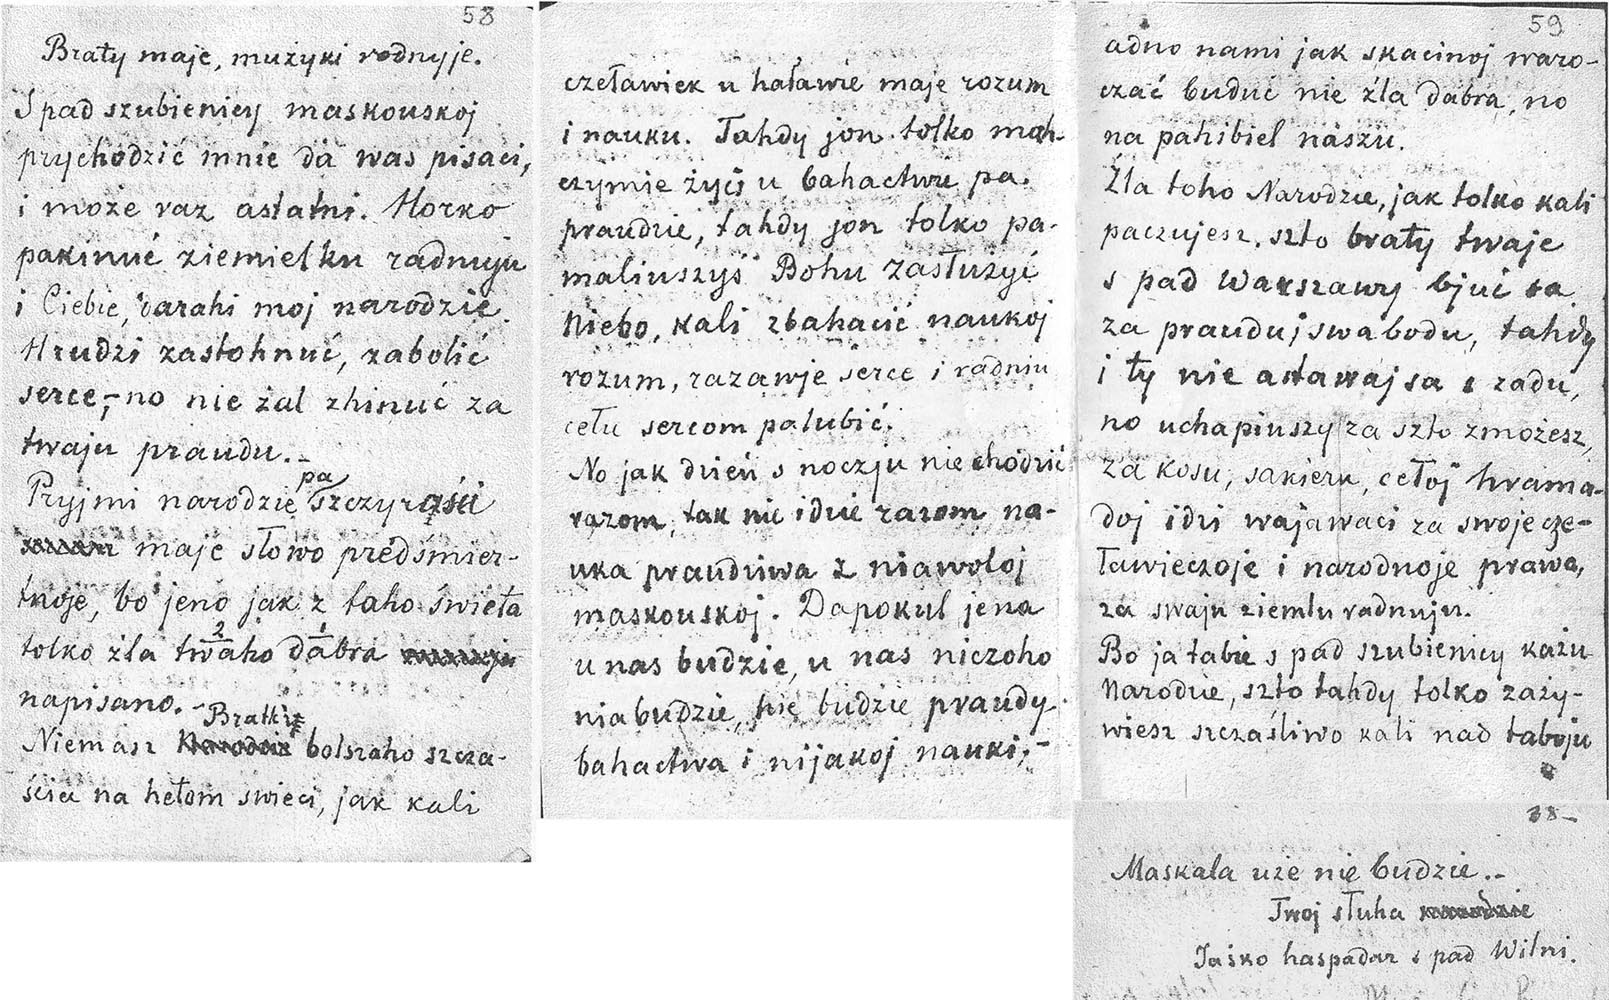 58
Braty maje, mużyki rodnyje.
S pad szubienicy maskouskoj
prychodzić mnie da was pisaci,
i może raz astatni. Horko
pakinuć ziemielku radnuju
i Ciebie, darahi moj narodzie.
Hrudzi zastohnuć, zabolić
serce,- no nie żal zhinuć za
twaju praudu.-
Pryjmi narodzie pa szczyrości
maje słowo predśmier-
tnoje, bo jeno jak z taho świeta
2 1
tolko żla twaho dabra
napisano.-
Bratki
Niemasz bolszaho szcza-
ścia na hetom swieci, jak kali
czeławiek u haławie maje rozum
i nauku. Tahdy jon tolko mah-
czymie życi u bahactwu pa
praudzie, tahdy jon tolko pa-
maliuszyś Bohu zasłużyć
Niebo, kali zbahacić naukoj
rozum, razawje serce i radniu
cełu sercom palubić.
No jak dzień s noczju nie chodzić
razom, tak nie idzie razom na-
uka praudziwa z niawoloj
maskouskoj. Dapokul jena
u nas budzie, u nas niczoho
niabudzie, nie budzie praudy
bahactwa i nijakoj nauki,-
59
adno nami jak skacinoj waro-
czać buduć nie żla dabra, no
na pahibiel naszu.
Żla toho Narodzie, jak tolko kali
paczujesz, szto braty twaje
s pad Warszawy bjuć sa
za praudu i swabodu, tahdy
i ty nie astawaj sa z zadu,
no uchapiuszy za szto zmożesz,
za kosu, sakieru, cełoj hrama-
doj idzi wajawaci za swoje cze-
ławieczoje i narodnoje prawo,
za swaju ziemlu radnuju.
Bo ja tabie s pad szubienicy każu
Narodzie, szto tahdy tolko zaży-
wiesz szczaśliwo kali nad taboju
38-
Maskala uże nie budzie.-
Twoj słuha
Jaśko haspadar s pad Wilni.